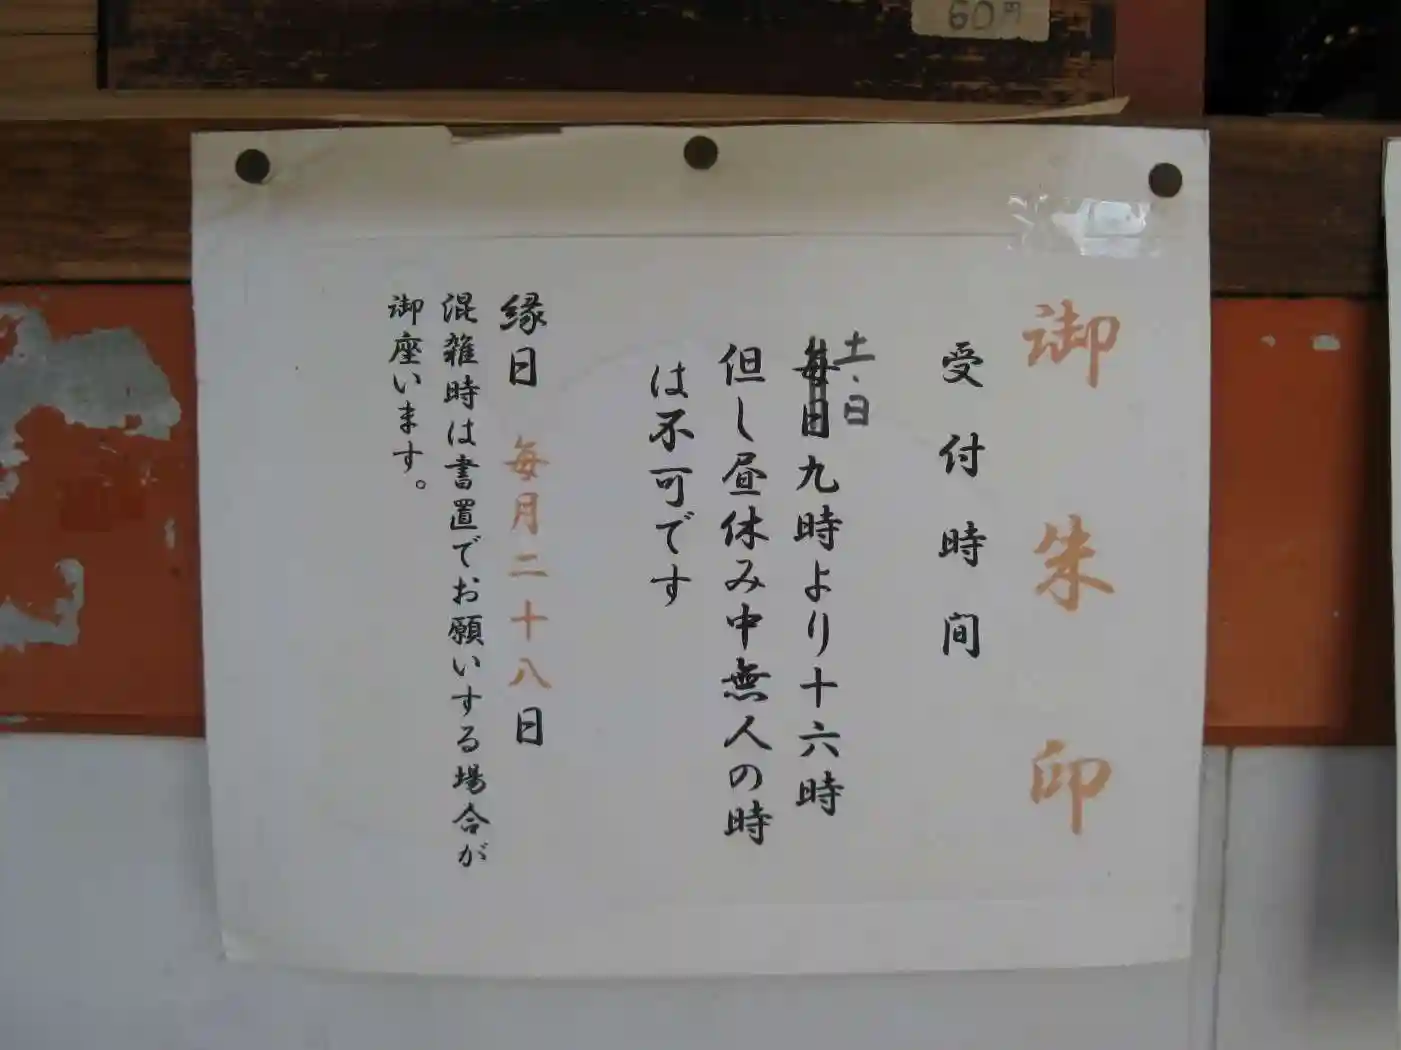 60円
御朱印
受付時間
土・日
毎日九時より十六時
但し昼休み中無人の時
は不可です
縁日 毎月二十八日
混雑時は書置でお願いする場合が
御座います。